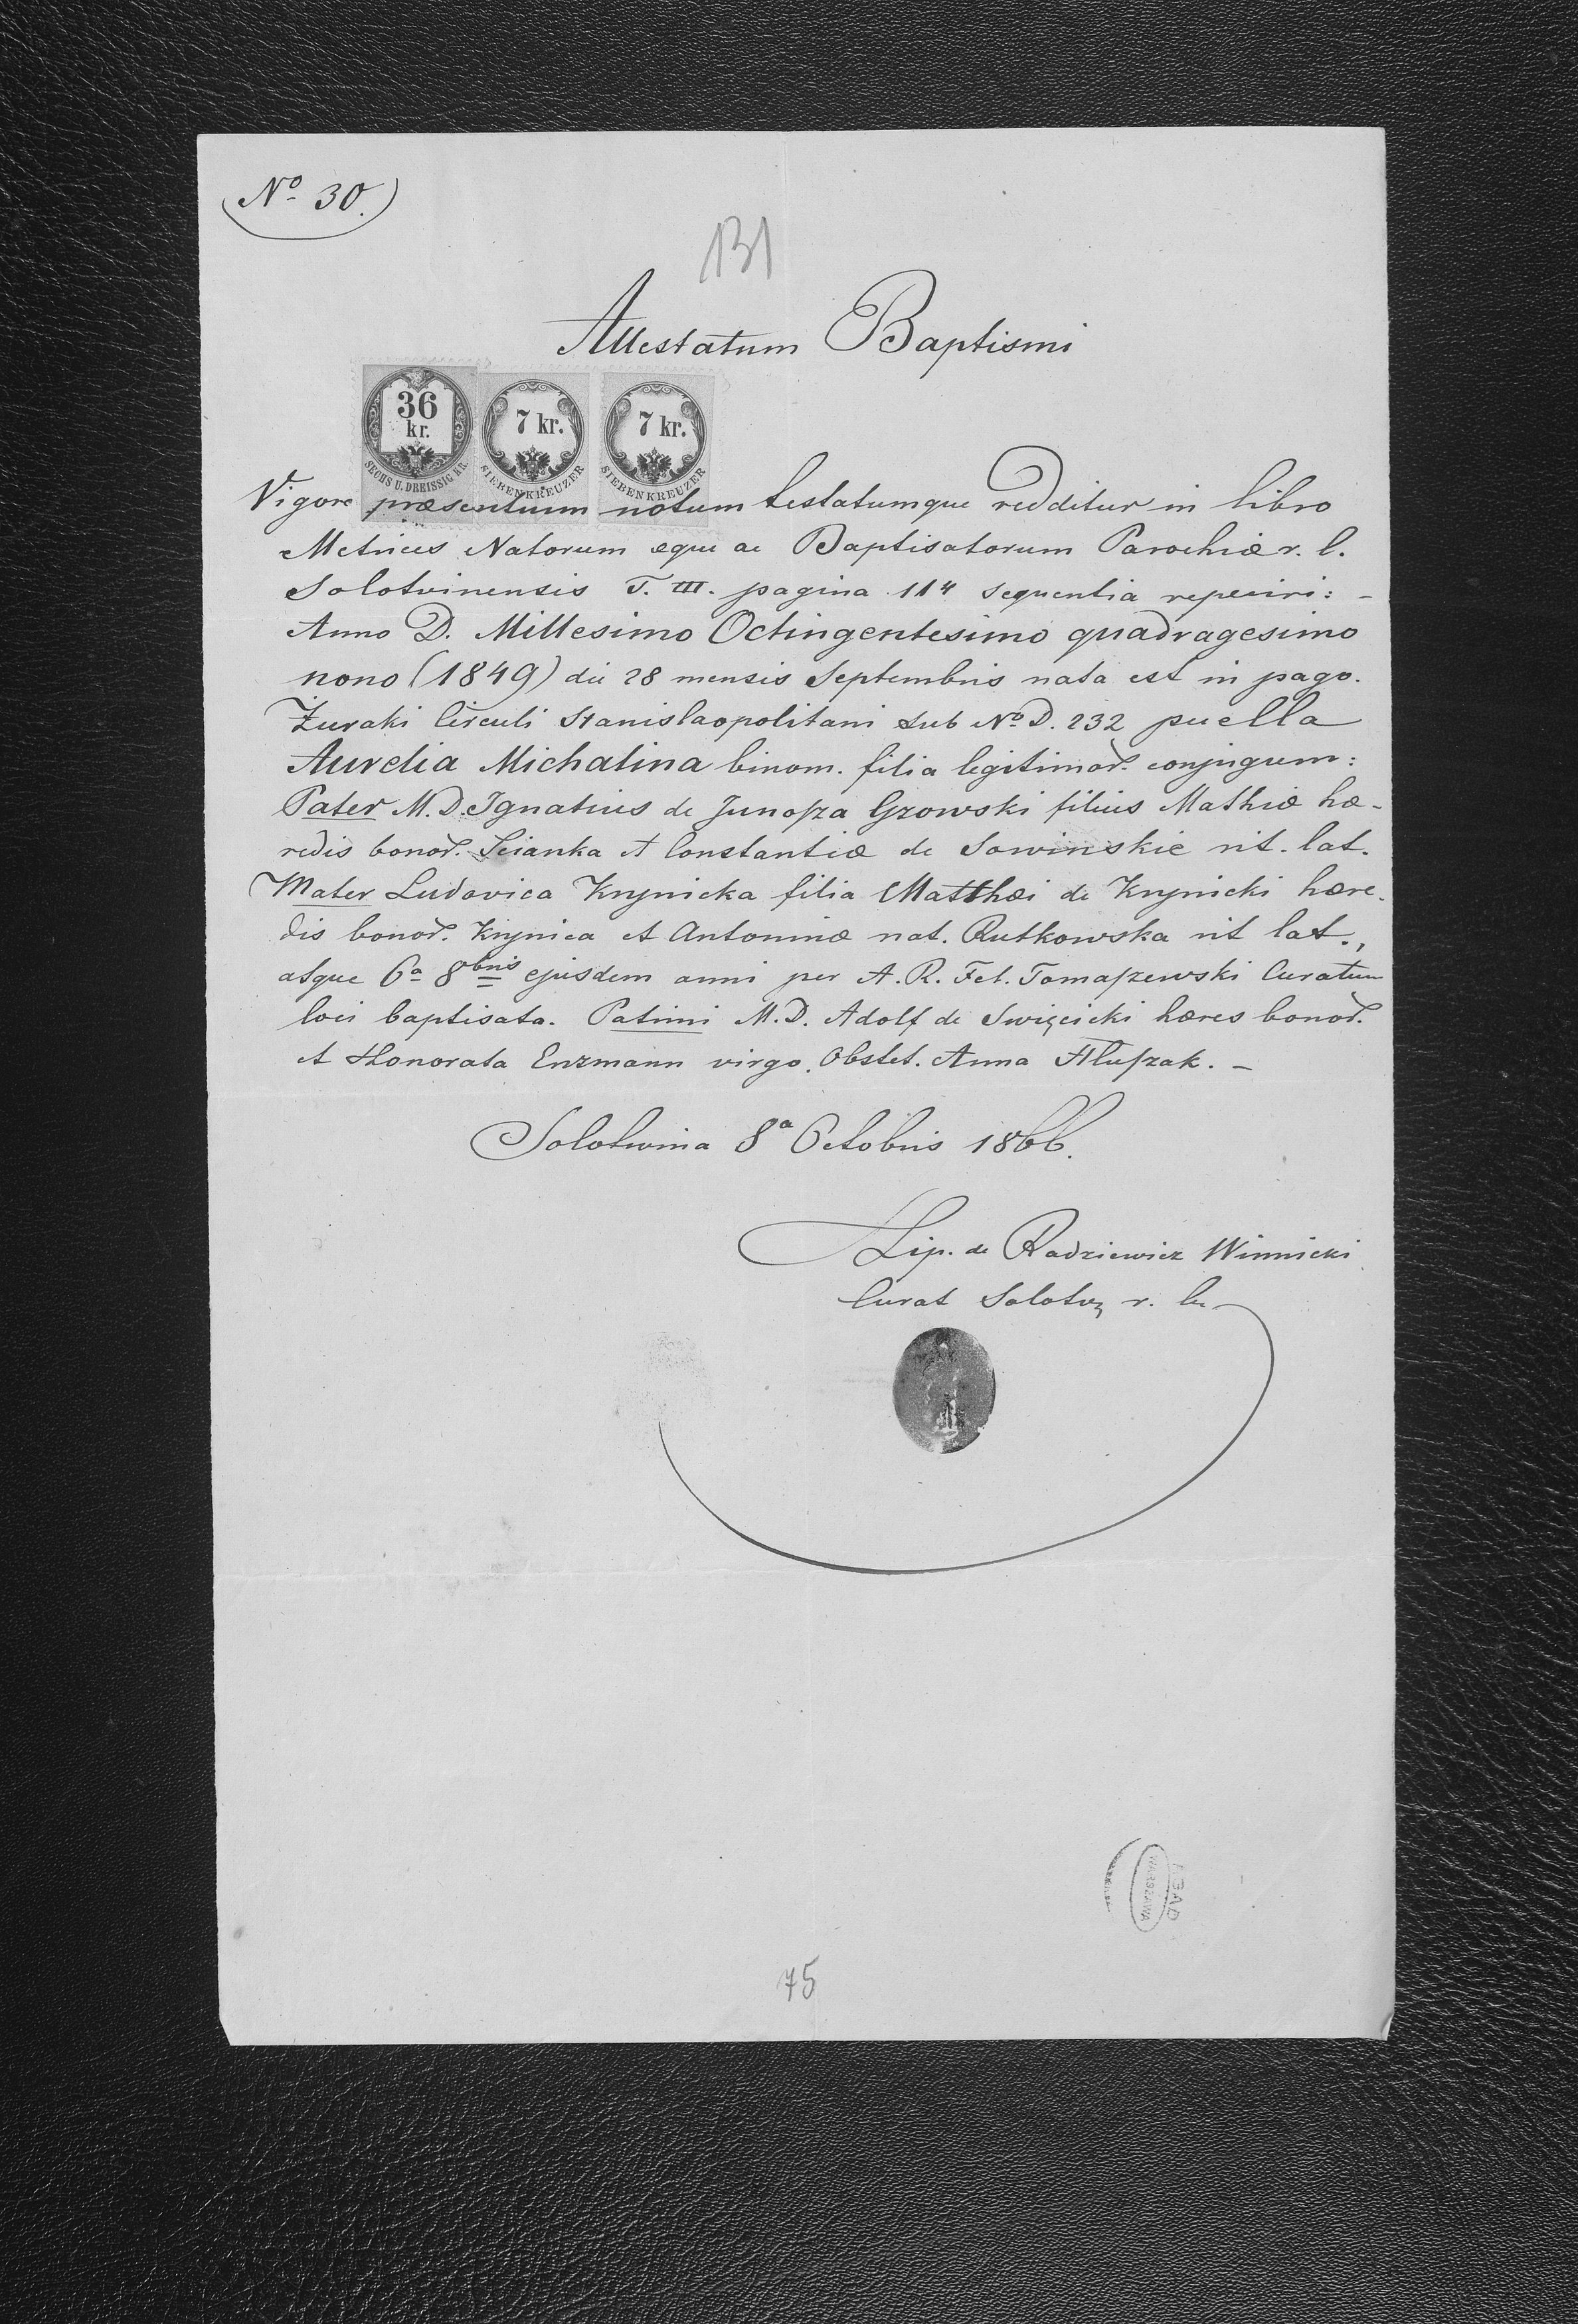 No 30.
131
Attestatum Baptismi
36 kr. 7 kr. 7 kr.
SECHS U. DREISSIG KR. SIEBEN KREUZER SIEBEN KREUZER
Vigore præsentium notum testatumque redditur in libro
Metrices Natorum æque ac Baptisatorum Parochiæ r. l.
Solotvinensis T. III. pagina 114 sequentia reperiri: -
Anno D. Millesimo Octingentesimo quadragesimo
nono (1849) die 28 mensis Septembris nata est in pago.
Żuraki Circuli Stanislaopolitani sub No D. 232 puella
Aurelia Michalina binom. filia legitimor. conjugum:
Pater M. D. Ignatius de Junosza Gzowski filius Mathiæ hæ-
redis bonor. Scianka et Constantiæ de Sowinskie rit. lat.
Mater Ludovica Krynicka filia Matthæi de Krynicki hære-
dis bonor. Krynica et Antoninæ nat. Rutkowska rit lat.,
atque 6a 8bris ejusdem anni per A. R. Fel. Tomaszewski Curatum
loci baptisata. Patrini M. D. Adolf de Swięcicki hæres bonor.
et Honorata Enzmann virgo. Obstet. Anna Hluszak. -
Solotwina 8a Octobris 1866.
Lip. de Radziewicz Winnicki
Curat Solotw r.
AGAD
WARSZAWA
75